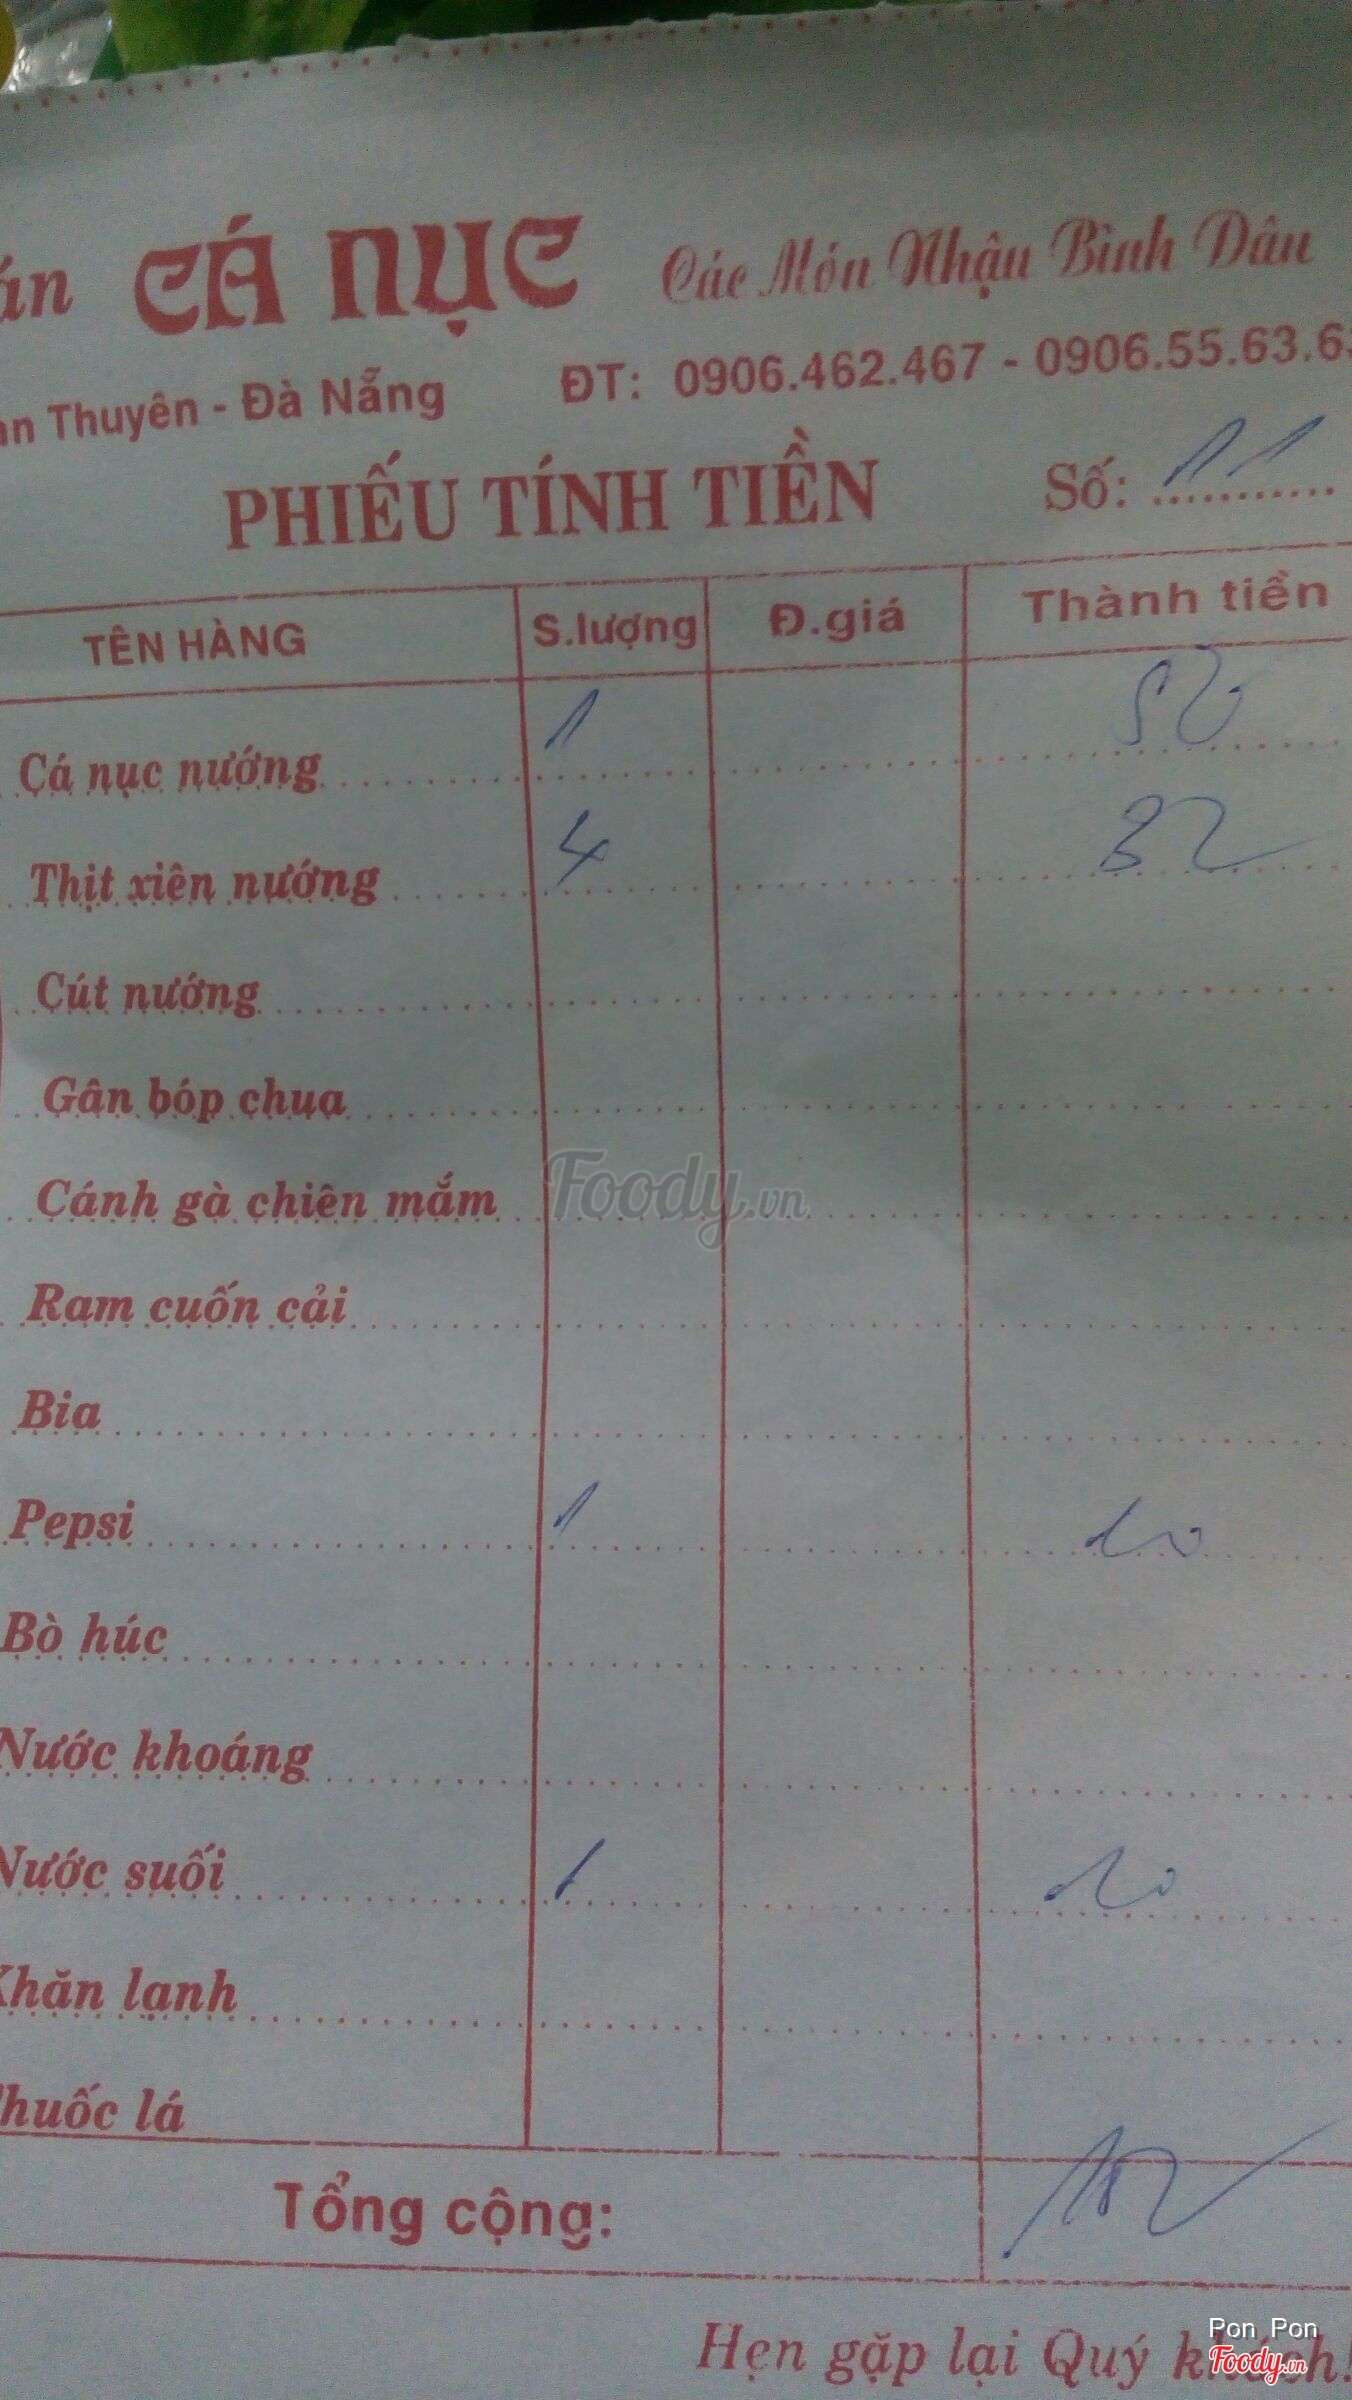 CÁ NỤC Các Món Nhậu Bình Dân
Thuyên - Đà Nẵng ĐT: 0906.462.467 - 0906.55.63.6
PHIẾU TÍNH TIỀN Số: 11
TÊN HÀNG S.lượng Đ.giá Thành tiền
Cá nục nướng 1 50
Thịt xiên nướng 4 32
Cút nướng
Gân bóp chua
Cánh gà chiên mắm
Foody.vn
Ram cuốn cải
Bia
Pepsi 1 10
Bò húc
Nước khoáng
Nước suối 1 10
Khăn lạnh
Thuốc lá
Tổng cộng: 102
Hẹn gặp lại Quý khách!
Pon Pon
Foody.vn